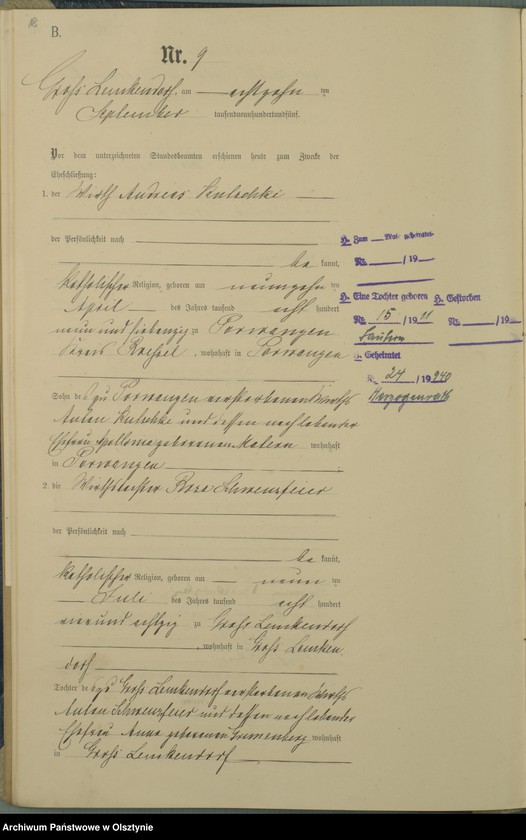 B.
Nr. 9
Gross Lemkendorf am achtzehn ten
September tausendneunhundertundfünf.
Vor dem unterzeichneten Standesbeamten erschienen heute zum Zwecke der
Eheschließung:
1. der Wirth Andreas
der Persönlichkeit nach
be kannt,
katholischer Religion, geboren am neunzehn ten
April des Jahres tausend acht hundert
neun und siebenzig zu Porwangen
Kreis Roessel, wohnhaft in Porwangen
Sohn des zu Porwangen verstorbenen Wirths
Anton und dessen nachlebender
Ehefrau geborenen wohnhaft
in Porwangen
2. die Wirthstochter Rosa Schwenzfeier
der Persönlichkeit nach
be kannt,
katholischer Religion, geboren am neun ten
Juli des Jahres tausend acht hundert
vier und achtzig zu Gross Lemkendorf
, wohnhaft in Gross Lemken
dorf
Tochter des zu Gross Lemkendorf verstorbenen Wirths
Anton Schwenzfeier und dessen nachlebender
Ehefrau Anna geborenen Grunenberg wohnhaft
in Gross Lemkendorf
Zum Mal geheiratet
Nr. / 19
Eine Tochter geboren
Nr. 15 / 1911
Gestorben
Nr. / 19
Geheiratet
Nr. 24 / 1940
Herzogenrath
Archiwum Państwowe w Olsztynie